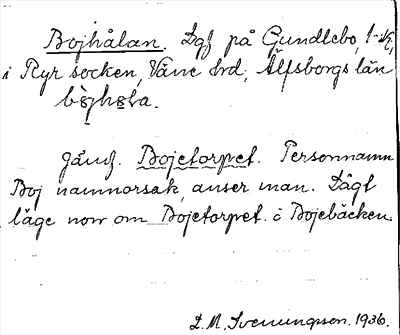 Bojhålan. Lgf på Gundlebo, 1-
i Ryr socken, Väne hrd, Älfsborgs län
bòjhəla.
Jämf. Bojetorpet. Personnamn
Boj namnorsak, anser man. Lågt
läge norr om Bojetorpet i Bojebäcken.
L. M. Svenungsson. 1936.